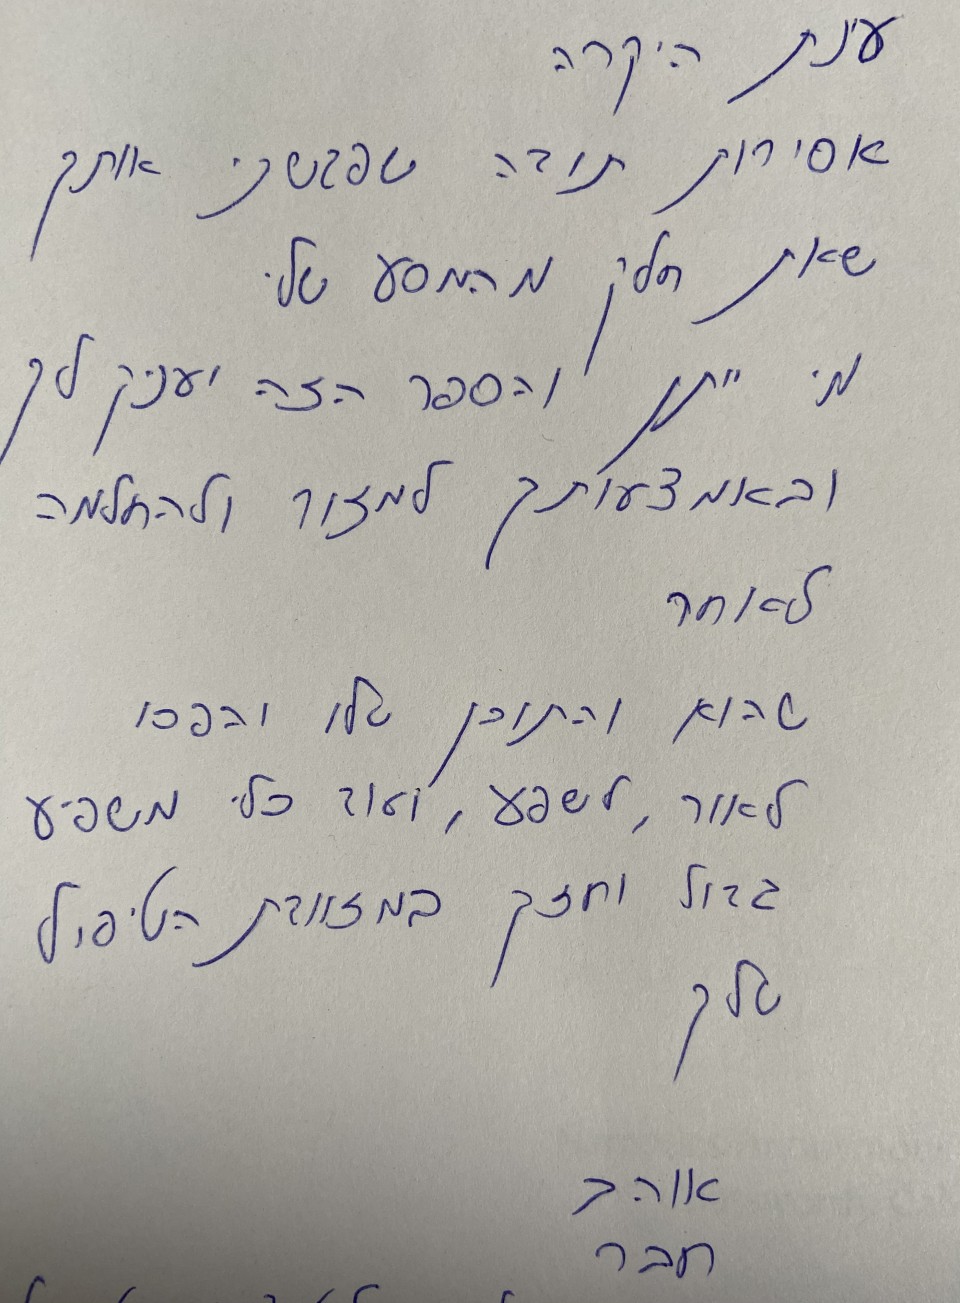 ענת היקרה
אסירות תודה שפגשתי אותך
שאת חלק מהמסע שלי
מי ייתן והספר הזה יעניק לך
ובאמצעותך למזור ולהחלמה
לאוחר
שהוא והתוכן שלו יהפכו
לאור, לשפע, ועוד כלי משפיע
גדול וחזק במזוודת הטיפול
שלך
אוהב
חבר